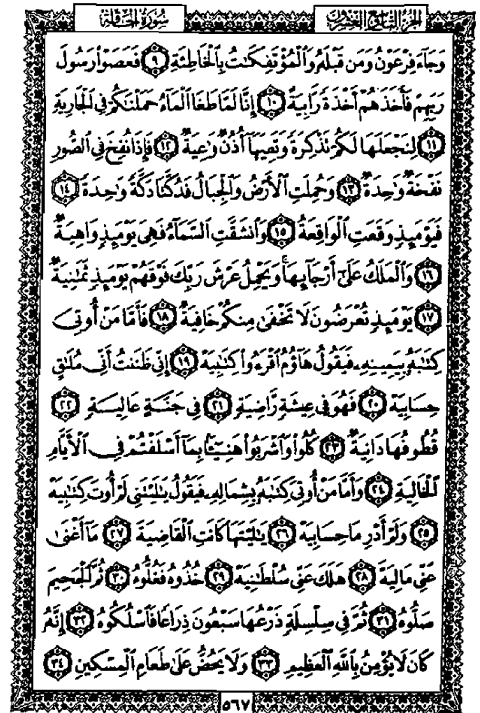 الجزء التاسع العشرون
سورة الحاقة
وَجَآءَ فِرْعَوْنُ وَمَن قَبْلَهُۥ وَٱلْمُؤْتَفِكَٰتُ بِٱلْخَاطِئَةِ ۝٩ فَعَصَوْا۟ رَسُولَ
رَبِّهِمْ فَأَخَذَهُمْ أَخْذَةً رَّابِيَةً ۝١٠ إِنَّا لَمَّا طَغَا ٱلْمَآءُ حَمَلْنَٰكُمْ فِى ٱلْجَارِيَةِ
۝١١ لِنَجْعَلَهَا لَكُمْ تَذْكِرَةً وَتَعِيَهَآ أُذُنٌ وَٰعِيَةٌ ۝١٢ فَإِذَا نُفِخَ فِى ٱلصُّورِ
نَفْخَةٌ وَٰحِدَةٌ ۝١٣ وَحُمِلَتِ ٱلْأَرْضُ وَٱلْجِبَالُ فَدُكَّتَا دَكَّةً وَٰحِدَةً ۝١٤
فَيَوْمَئِذٍ وَقَعَتِ ٱلْوَاقِعَةُ ۝١٥ وَٱنشَقَّتِ ٱلسَّمَآءُ فَهِىَ يَوْمَئِذٍ وَاهِيَةٌ
۝١٦ وَٱلْمَلَكُ عَلَىٰٓ أَرْجَآئِهَا وَيَحْمِلُ عَرْشَ رَبِّكَ فَوْقَهُمْ يَوْمَئِذٍ ثَمَٰنِيَةٌ
۝١٧ يَوْمَئِذٍ تُعْرَضُونَ لَا تَخْفَىٰ مِنكُمْ خَافِيَةٌ ۝١٨ فَأَمَّا مَنْ أُوتِىَ
كِتَٰبَهُۥ بِيَمِينِهِۦ فَيَقُولُ هَآؤُمُ ٱقْرَءُوا۟ كِتَٰبِيَهْ ۝١٩ إِنِّى ظَنَنتُ أَنِّى مُلَٰقٍ
حِسَابِيَهْ ۝٢٠ فَهُوَ فِى عِيشَةٍ رَّاضِيَةٍ ۝٢١ فِى جَنَّةٍ عَالِيَةٍ ۝٢٢
قُطُوفُهَا دَانِيَةٌ ۝٢٣ كُلُوا۟ وَٱشْرَبُوا۟ هَنِيٓـًٔۢا بِمَآ أَسْلَفْتُمْ فِى ٱلْأَيَّامِ
ٱلْخَالِيَةِ ۝٢٤ وَأَمَّا مَنْ أُوتِىَ كِتَٰبَهُۥ بِشِمَالِهِۦ فَيَقُولُ يَٰلَيْتَنِى لَمْ أُوتَ كِتَٰبِيَهْ
۝٢٥ وَلَمْ أَدْرِ مَا حِسَابِيَهْ ۝٢٦ يَٰلَيْتَهَا كَانَتِ ٱلْقَاضِيَةَ ۝٢٧ مَآ أَغْنَىٰ
عَنِّى مَالِيَهْ ۝٢٨ هَلَكَ عَنِّى سُلْطَٰنِيَهْ ۝٢٩ خُذُوهُ فَغُلُّوهُ ۝٣٠ ثُمَّ ٱلْجَحِيمَ
صَلُّوهُ ۝٣١ ثُمَّ فِى سِلْسِلَةٍ ذَرْعُهَا سَبْعُونَ ذِرَاعًا فَٱسْلُكُوهُ ۝٣٢ إِنَّهُۥ
كَانَ لَا يُؤْمِنُ بِٱللَّهِ ٱلْعَظِيمِ ۝٣٣ وَلَا يَحُضُّ عَلَىٰ طَعَامِ ٱلْمِسْكِينِ ۝٣٤
٥٦٧